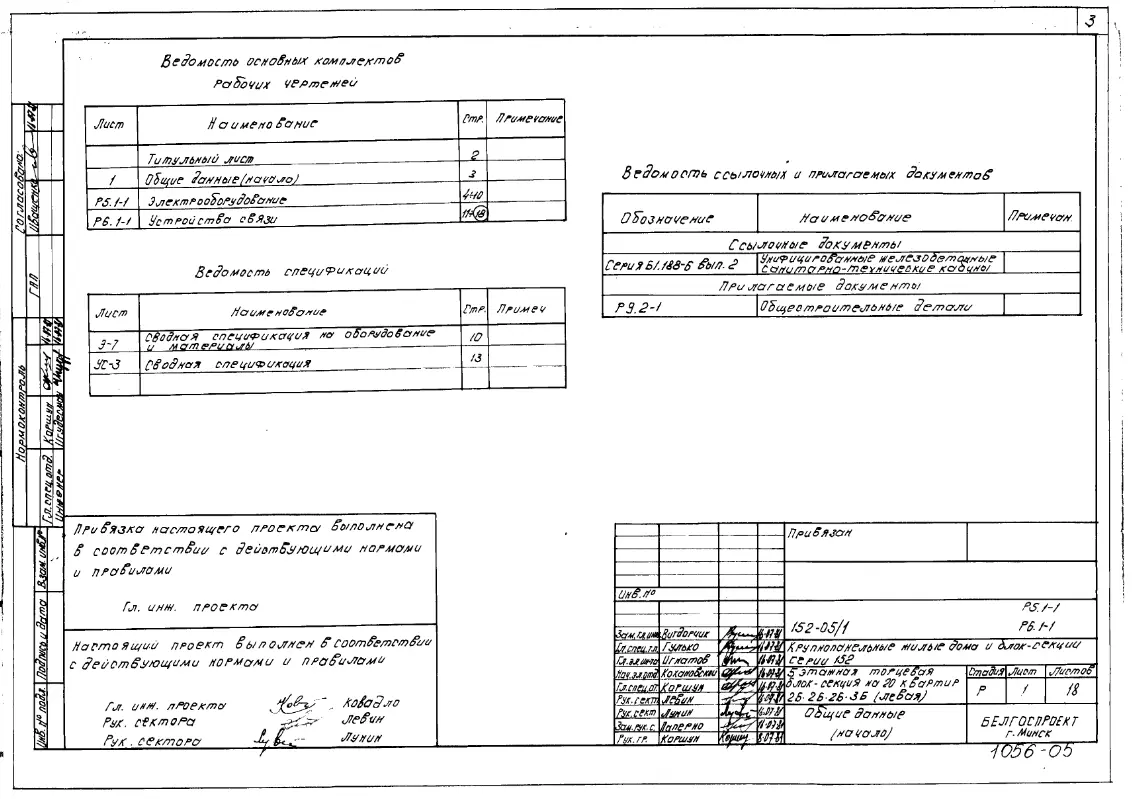 3
Ведомость основных комплектов
рабочих чертежей
Лист Наименование Стр. Примечание
Титульный лист 2
1 Общие данные (начало) 3
Р5.1-1 Электрооборудование 4-10
Р6.1-1 Устройства связи 11-18
Ведомость спецификаций
Лист Наименование Стр. Примеч
Э-7 Сводная спецификация на оборудование
и материалы 10
УС-3 Сводная спецификация 13
Ведомость ссылочных и прилагаемых документов
Обозначение Наименование Примечан.
Ссылочные документы
Серия Б1.188-6 вып. 2 Унифицированные железобетонные
санитарно-технические кабины
Прилагаемые документы
Р9.2-1 Общестроительные детали
Согласовано:
Иваценко
ГАП
Нормоконтроль
Гл.спец.отд. Коршун
Инженер
Взам. инв.№
Подпись и дата
Инв. № подл.
Привязка настоящего проекта выполнена
в соответствии с действующими нормами
и правилами
Гл. инж. проекта
Настоящий проект выполнен в соответствии
с действующими нормами и правилами
Гл. инж. проекта Ковадло
Рук. сектора Левин
Рук. сектора Лунин
Привязан
Инв.№
Р5.1-1
152-05/1 Р6.1-1
Зам.гл.инж. Вигдорчик
Гл.спец.т.п. Гулько
Игнатов
Нач.эл.отд Кохановский
Гл.спец.от. Коршун
Рук.сект. Левин
Рук.сект Лунин
Зам.рук.с. Лаперно
Рук.гр. Коршун
Крупнопанельные жилые дома и блок-секции
серии 152
5 этажная торцевая
блок-секция на 20 квартир
2Б-2Б-2Б-3Б (левая)
Стадия Лист Листов
Р 1 18
Общие данные
(начало)
БЕЛГОСПРОЕКТ
г. Минск
1056-05